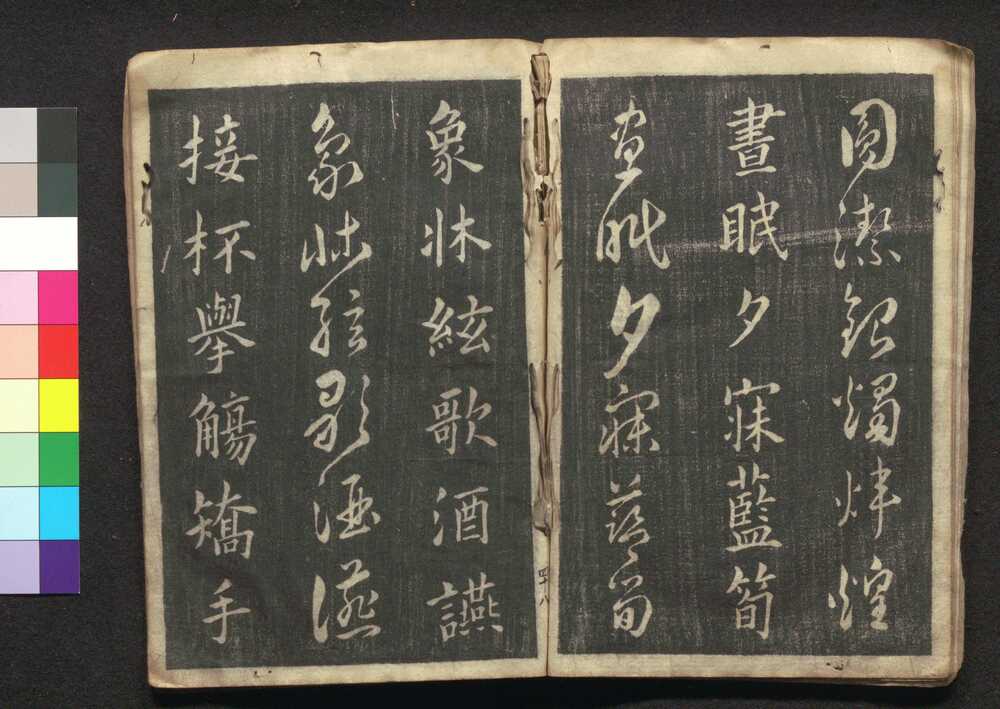 圓潔銀燭煒煌
晝眠夕寐藍筍
晝眠夕寐藍筍
象牀絃歌酒讌
象牀絃歌酒讌
接杯舉觴矯手